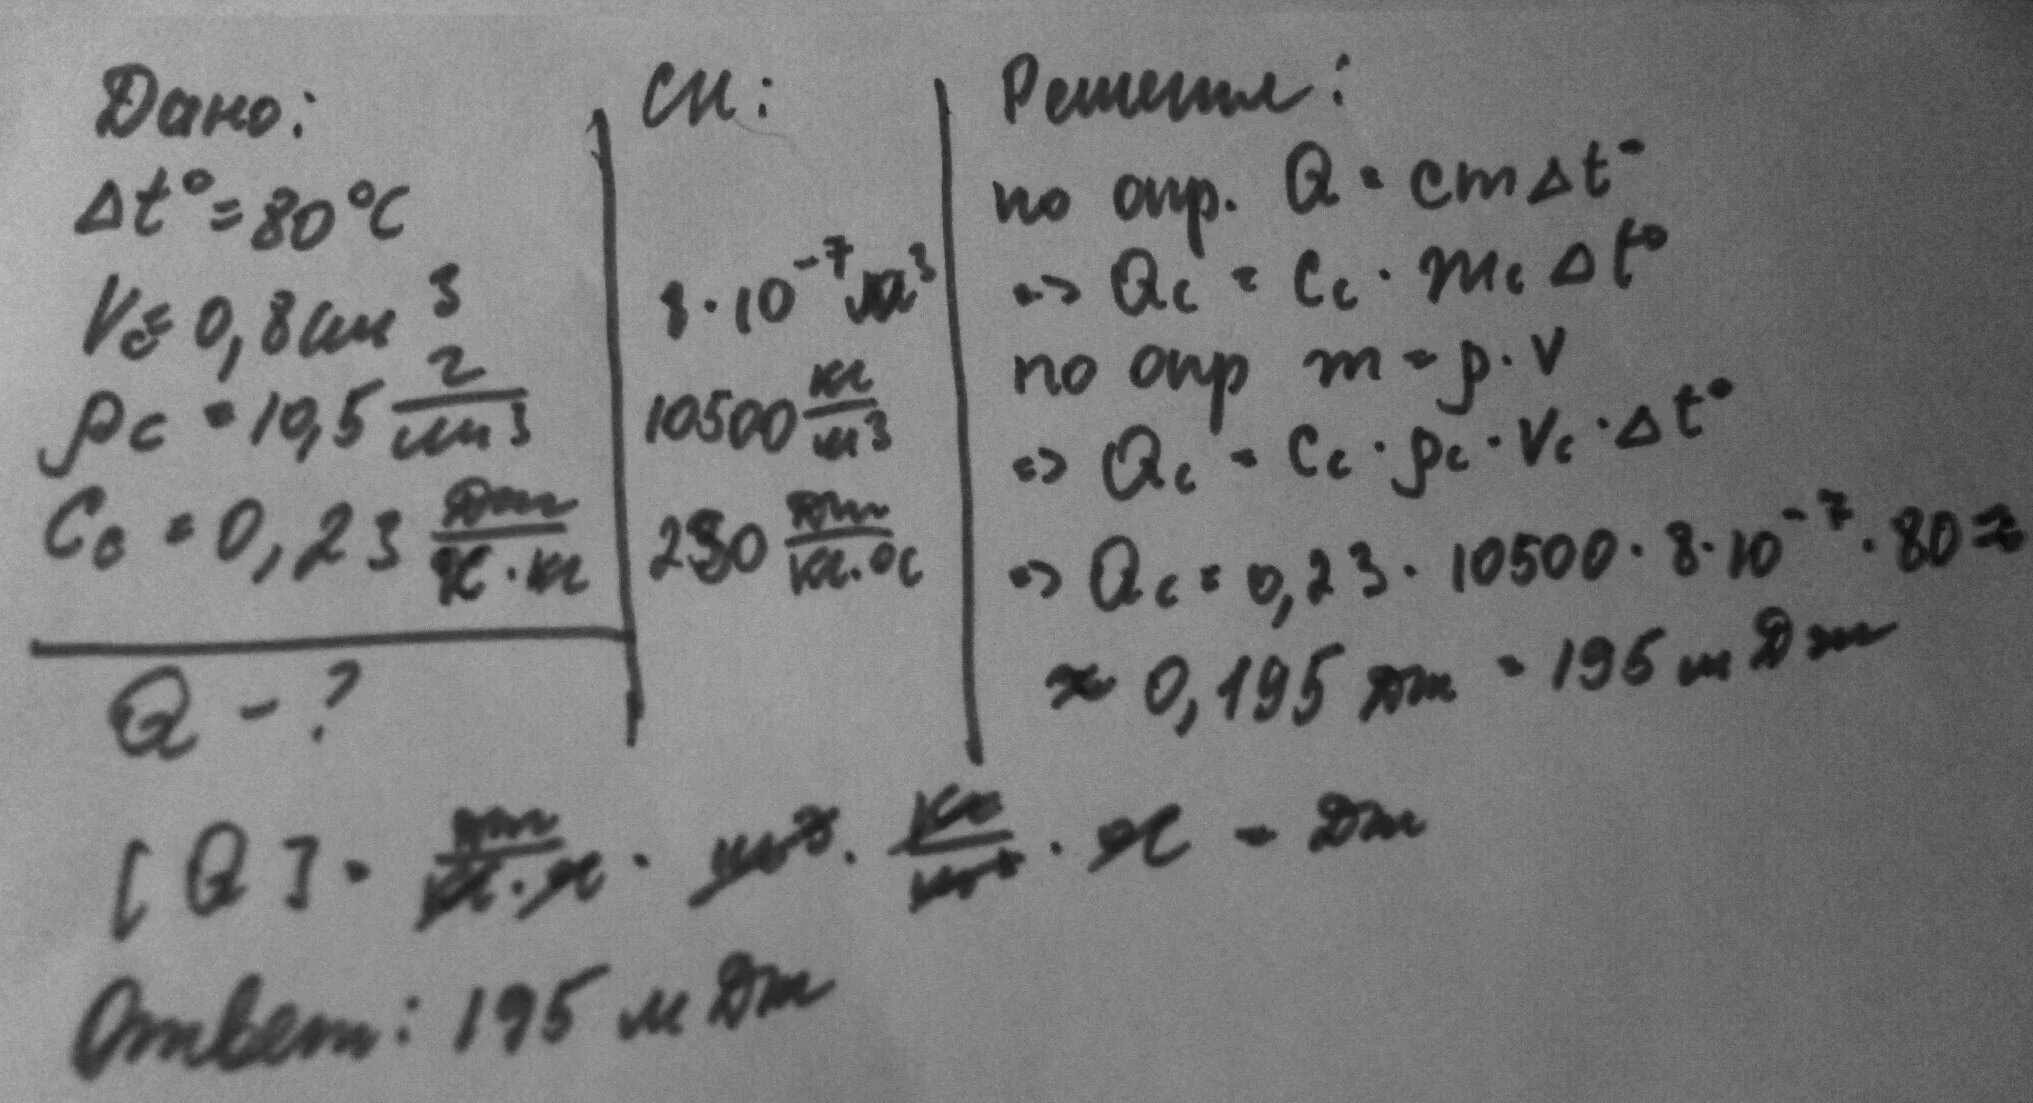 Дано:
Δt° = 80°C
Vc = 0,8 см³
ρc = 10,5 г/см³
Cc = 0,23 Дж/°C·кг
Q - ?
СИ:
8·10⁻⁷ м³
10500 кг/м³
230 Дж/кг·°C
Решение:
по опр. Q = cmΔt°
=> Qc = Cc · mc Δt°
по опр m = ρ·V
=> Qc = Cc · ρc · Vc · Δt°
=> Qc = 0,23 · 10500 · 8·10⁻⁷ · 80 ≈
≈ 0,195 Дж = 195 мДж
[Q] = Дж/кг·°C · м³ · кг/м³ · °C = Дж
Ответ: 195 мДж